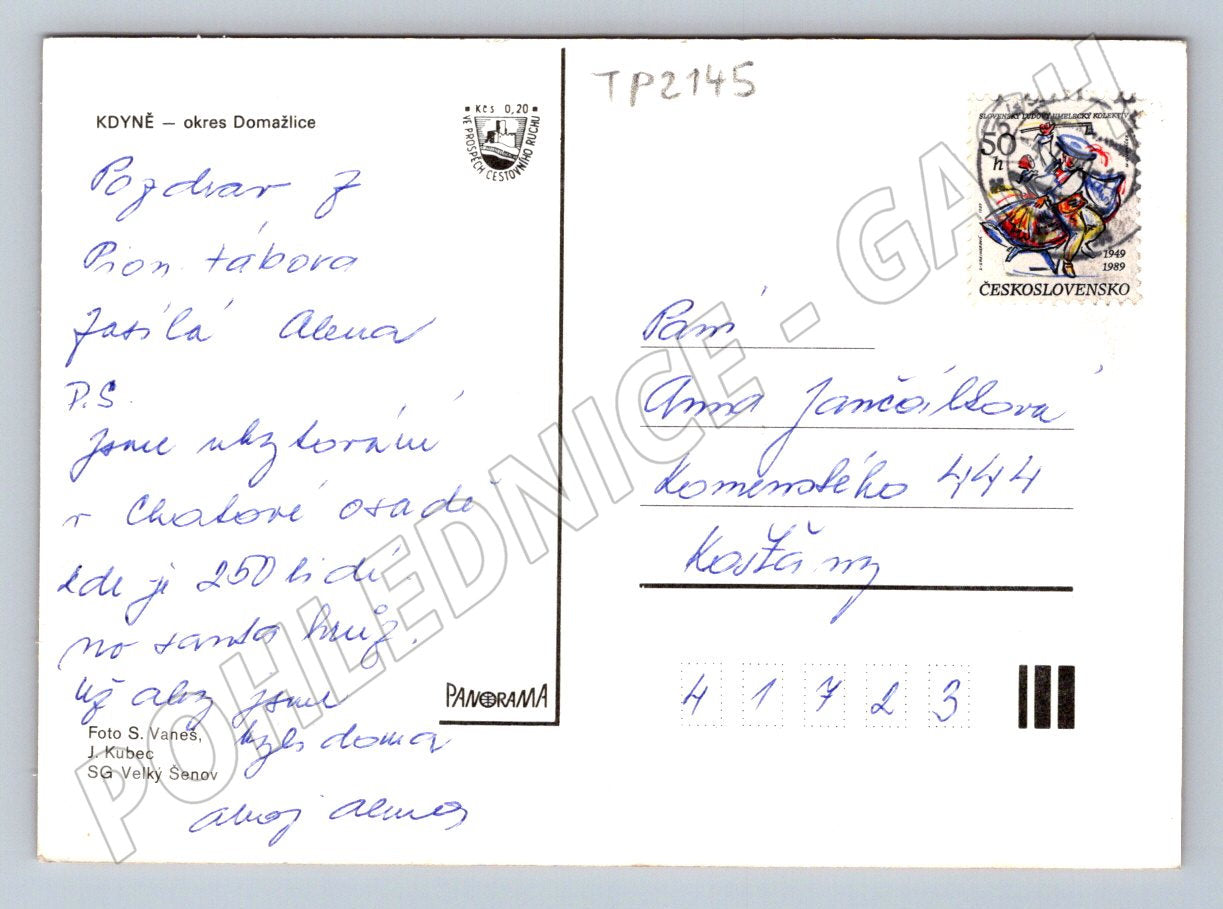 KDYNĚ — okres Domažlice
Kčs 0,20
VE PROSPĚCH CESTOVNÍHO RUCHU
Pozdrav z
Pion. tábora
Zasílá Alena
P.S.
Jsme ubytováni
v Chatové osadě
kde je 250 lidí.
no samta hrůz.
Už aby jsme
byli doma
ahoj Alena
Foto S. Vaneš,
J. Kubec
SG Velký Šenov
PANORAMA
TP2145
SLOVENSKÝ ĽUDOVÝ UMELECKÝ KOLEKTÍV
50
h
1949
1989
ČESKOSLOVENSKO
Paní
Anna Jančálková
Komenského 444
Košťany
41723
POHLEDNICE - GAPH